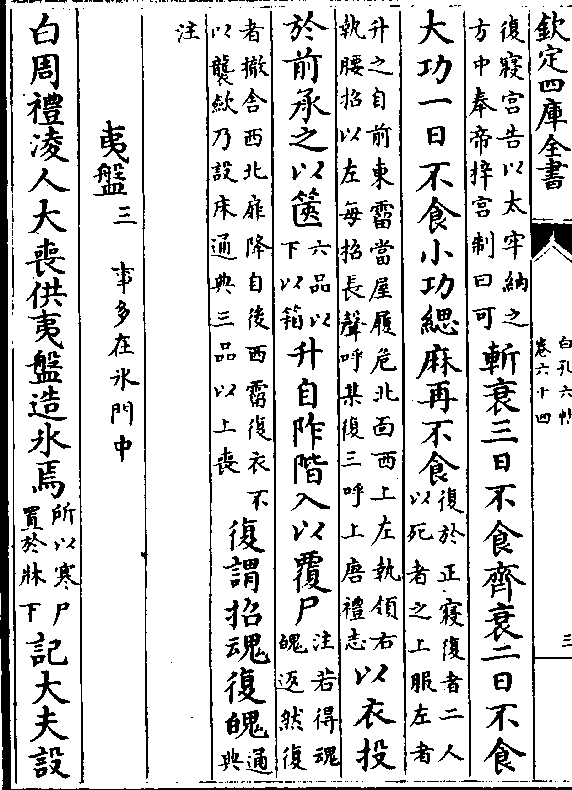 欽定四庫全書
白孔六帖
卷六十四
三
復寢宮告以太牢納之
方中奉帝梓宮制曰可
斬衰三日不食齊衰二日不食
大功一日不食小功緦麻再不食
復於正寢復者二人
以死者之上服左者
升之自前東霤當屋履危北面西上左執領右
執腰招以左每招長聲呼某復三呼上唐禮志
以衣投
於前承之以篋
六品以
下以箱
升自阼階入以覆尸
注若得魂
魄返然復
者撤舍西北扉降自後西霤復衣不
以襲歛乃設床通典三品以上喪
復謂招魂復魄
通
典
注
夷盤三 事多在氷門中
白周禮淩人大喪供夷盤造氷焉
所以寒尸
置於牀下
記大夫設